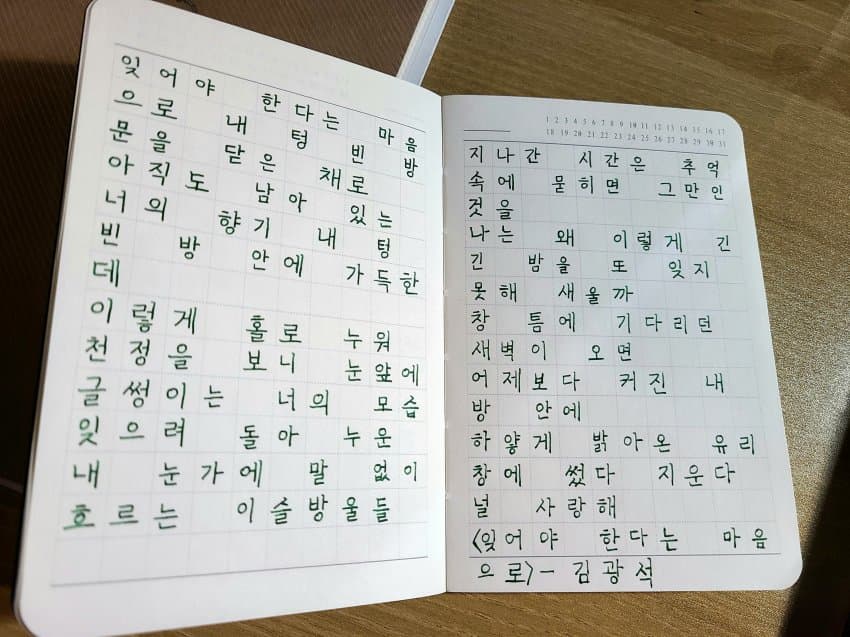 잊어야 한다는 마음
으로 내 텅 빈 방
문을 닫은 채로
아직도 남아 있는
너의 향기 내 텅
빈 방 안에 가득한
데
이렇게 홀로 누워
천정을 보니 눈앞에
글썽이는 너의 모습
잊으려 돌아 누운
내 눈가에 말 없이
흐르는 이슬방울들
1 2 3 4 5 6 7 8 9 10 11 12 13 14 15 16 17
18 19 20 21 22 23 24 25 26 27 28 29 30 31
지나간 시간은 추억
속에 묻히면 그만인
것을
나는 왜 이렇게 긴
긴 밤을 또 잊지
못해 새울까
창 틈에 기다리던
새벽이 오면
어제보다 커진 내
방 안에
하얗게 밝아온 유리
창에 썼다 지운다
널 사랑해
<잊어야 한다는 마음
으로>- 김광석